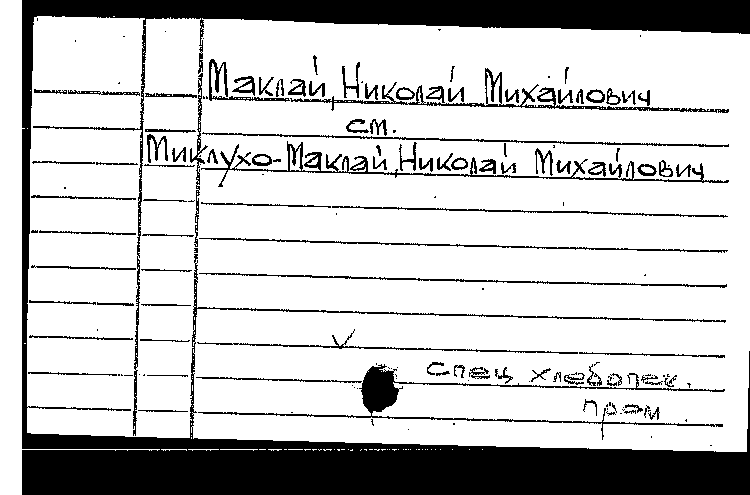 Маклай, Николай Михайлович
см.
Миклухо-Маклай, Николай Михайлович
спец хлебопек.
пром